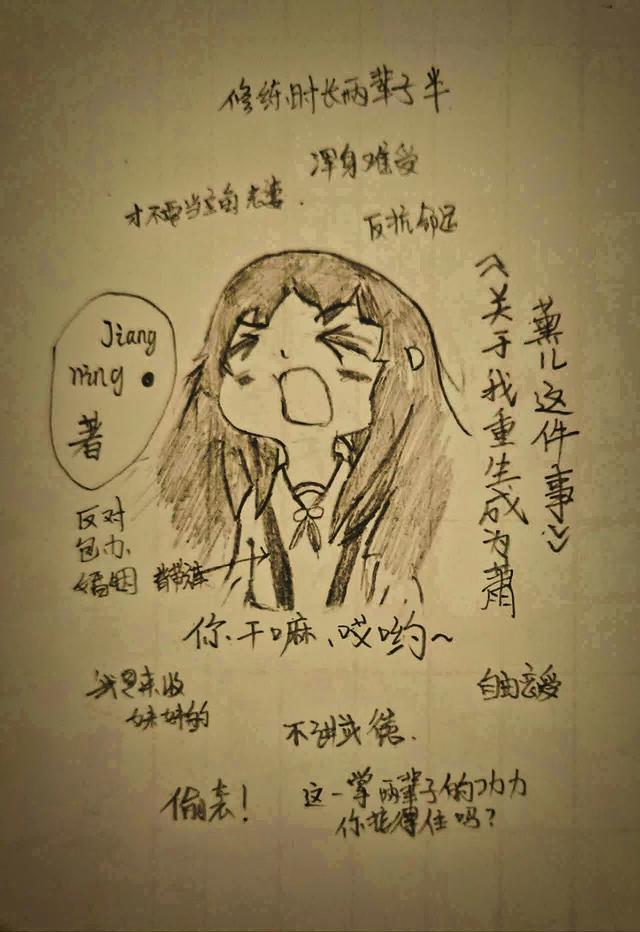 修练时长两辈子半
浑身难受
才不要当主角老婆.
反抗命运
《关于我重生成为萧
薰儿这件事》
Jiang
ning
著
反对
包办
婚姻
背带裤
你干嘛、哎哟~
我是来收
妹妹的
自由恋爱
不讲武德.
偷袭!
这一掌两辈子的功力
你接得住吗?